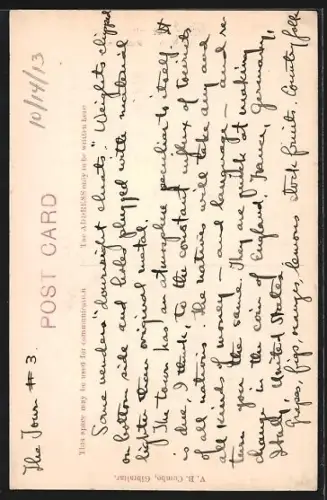 The Town # 3.
10/14/13
POST CARD
This space may be used for communication.
The ADDRESS only to be written here
Some venders "downright cheats." Weights clipped
on bottom side and holes plugged with material
lighter than original metal.
The town has an atmosphere peculiar to itself. It
is due, I think, to the constant influx of tourists
of all nations. The natives will take any and
all kinds of money – and language – and re-
turn you the same. They are quick at making
change in the coin of England, France, Germany,
Italy, United States.
Grapes, figs, oranges, lemons stock fruits. Country folk
V. B. Cumbo, Gibraltar.